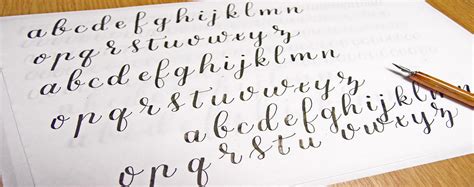 abcdefghijklmn
opqrstuvwxyz
abcdefghijklmn
opqrstuvwxyz
abcdefghijklmn
opqrstuvwxyz